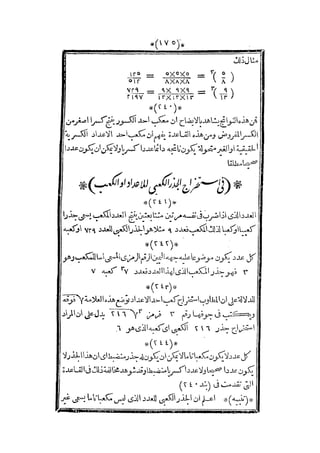 *(١٧٥)*
مثال ذلك
(٥/٨)٣ = ٥×٥×٥/٨×٨×٨ = ١٢٥/٥١٢
(٩/١٣)٣ = ٩×٩×٩/١٣×١٣×١٣ = ٧٢٩/٢١٩٧
*(٢٤٠)*
فمن هذه النواتج يشاهد بالايضاح ان مكعب احد الكسور ينتج كسرا اصغر من
الكسر المفروض ومن هذه القاعدة يفهم ان مكعب احد الاعداد الكسرية
الحقيقية او الغير متحولة يكون ناتجه دائما عددا كسريا ولا يمكن ان يكون عددا
صحيحا مطلقا
*(فى استخراج الجذر الكعبى للاعداد او الكعب)*
*(٢٤١)*
العدد الذى اذا ضرب فى نفسه مرتين متتابعتين ينتج العدد المكعب يسمى جذرا
كعبيا او كعبا لذلك المكعب فعدد ٩ مثلا هو الجذر الكعبى للعدد ٧٢٩ او كعبه
*(٢٤٢)*
كل عدد يكون موضوعا عليه جهة اليمين الرقم الرمزى المسمى اسا للمكعب وهو
٣ فهو جذر المكعب الذى لهذا العدد فعدد ٢٧ كعبه ٣
*(٢٤٣)*
للدلالة على ان المطلوب استخراج كعب احد الاعداد توضع هذه العلامة √ فوقه
ويكتب فى جوفها رقم ٣ فرمز ٣√٢١٦ يدل على ان المراد
استخراج جذر ٢١٦ الكعبى اى كعبه الذى هو ٦
*(٢٤٤)*
كل عدد لا يكون مكعبا تاما لا يمكن ان يكون له جذر منضبط اى ان هذا الجذر لا
يكون عددا صحيحا ولا عددا كسريا منضبطا وقد شوهد مخالفة ذلك فى القاعدة
التى تقدمت فى (بند ٢٤٠)
*(تنبيه)* اعلم ان الجذر الكعبى للعدد الذى ليس مكعبا تاما يسمى غير